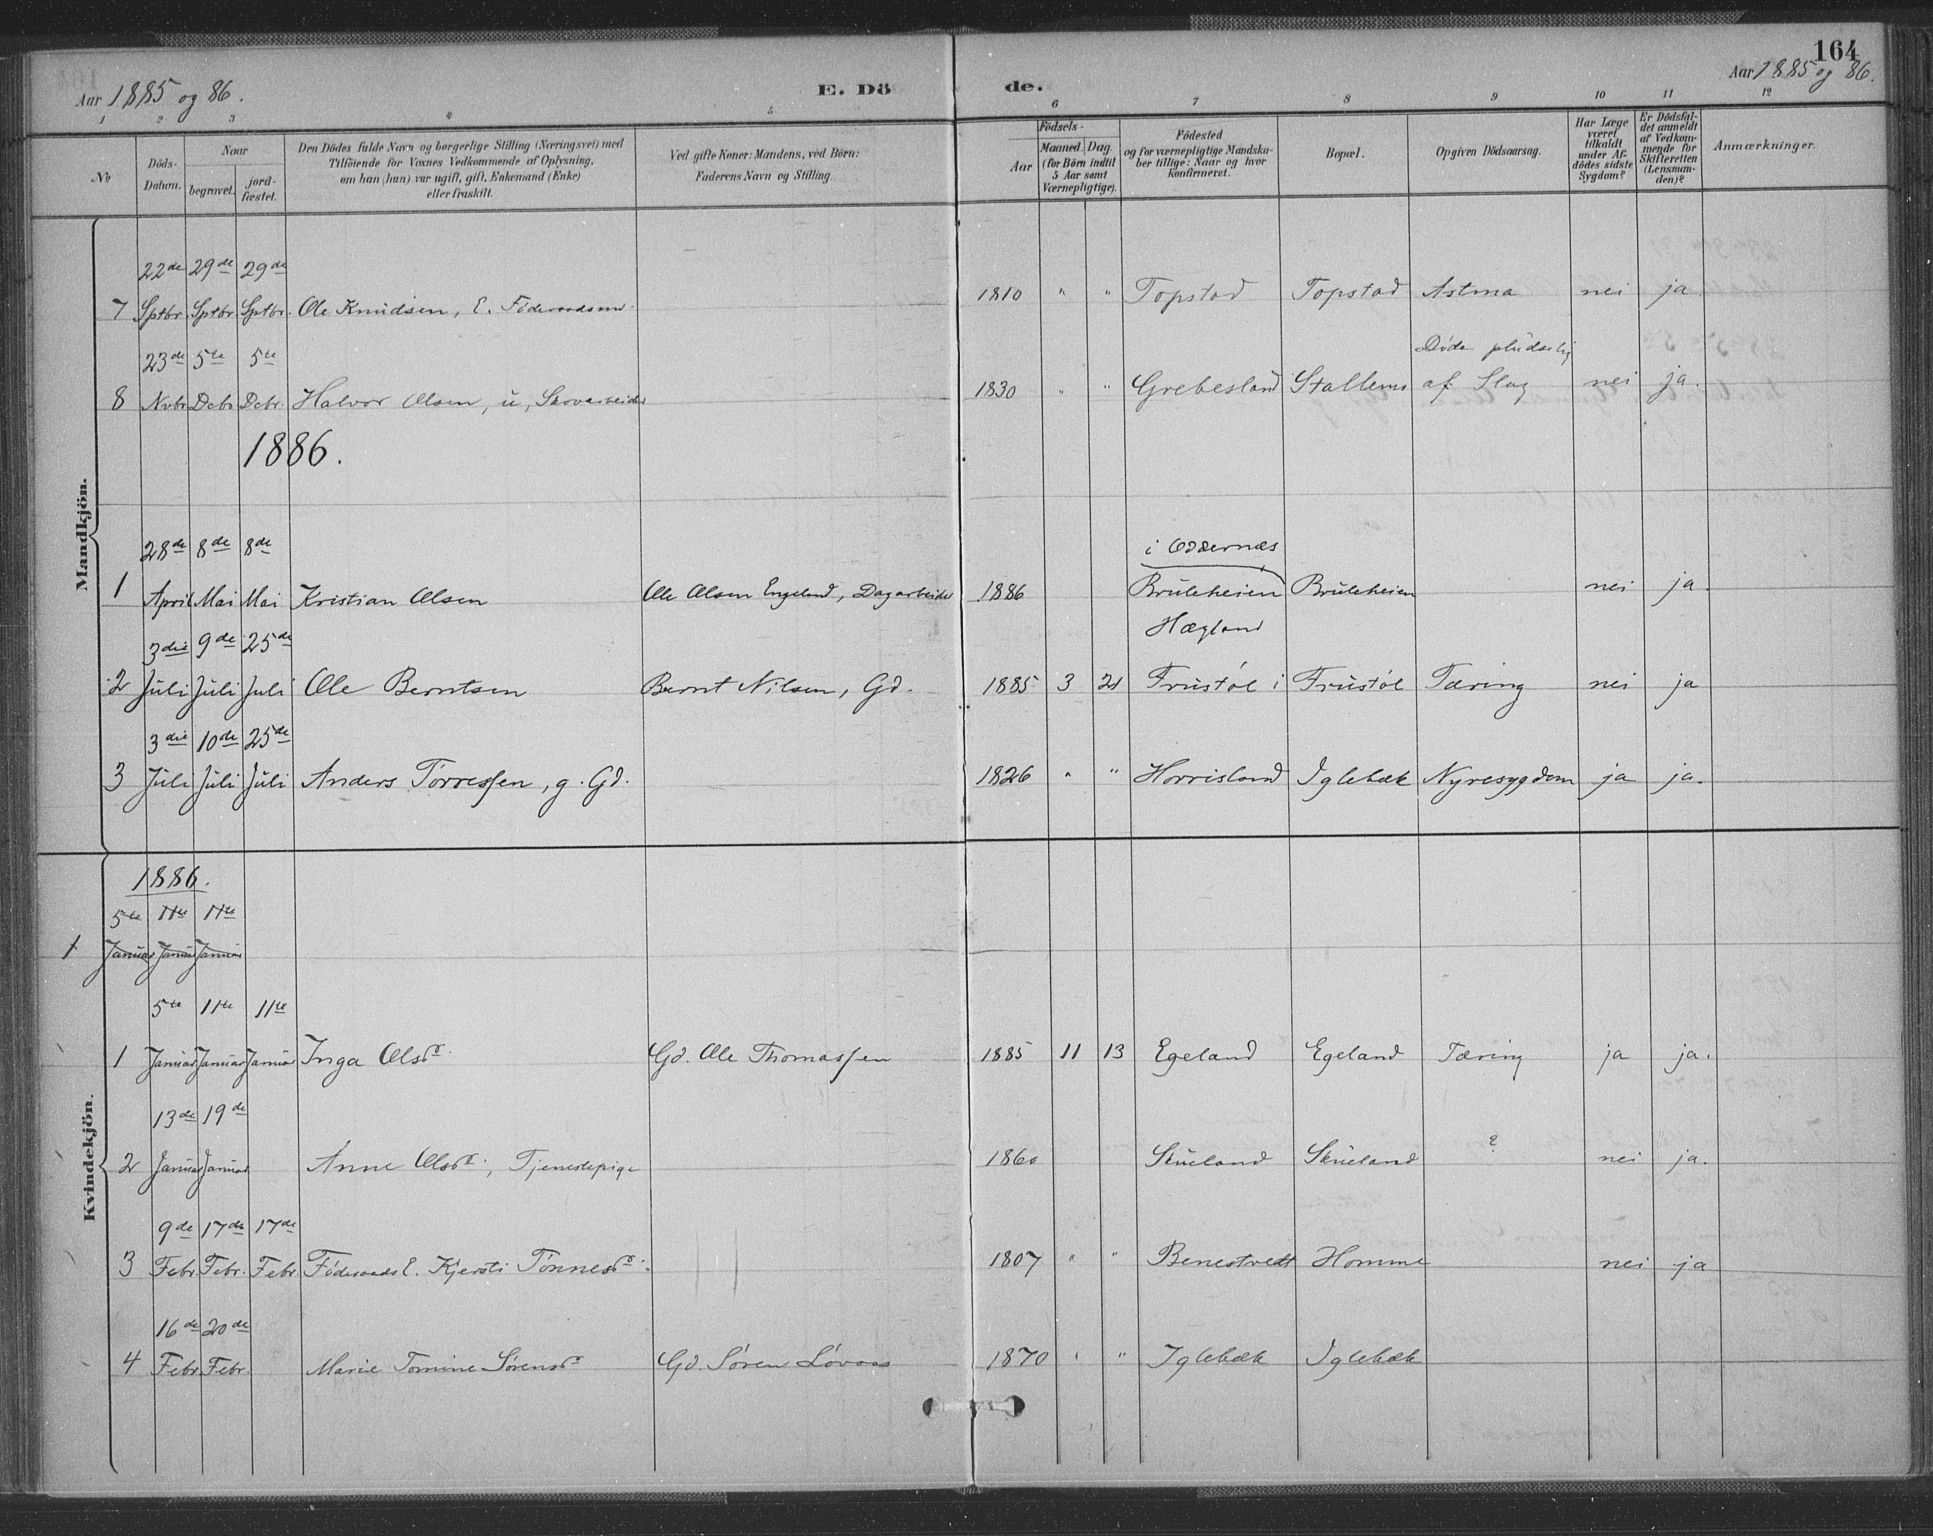 164
Aar 1885 og 86.
E. Dö
de.
Aar 1885 og 86.
1 2 3 4 5 6 7 8 9 10 11 12
No
Döds-
Datum.
Naar
begravet.
jord-
fæstet.
Den Dödes fulde Navn og borgerlige Stilling (Næringsvei) med
Tilföiende for Voxnes Vedkommende af Oplysning,
om han (hun) var ugift, gift, Enkemand (Enke)
eller fraskilt.
Ved gifte Koner: Mandens, ved Börn:
Faderens Navn og Stilling.
Födsels-
Aar
Maaned. Dag
(for Börn indtil
5 Aar samt
Værnepligtige).
Födested
og for værnepligtige Mandska-
ber tillige: Naar og hvor
konfirmeret.
Bopæl.
Opgiven Dödsaarsag.
Har Læge
været
tilkaldt
under Af-
dödes sidste
Sygdom?
Er Dödsfal-
det anmeldt
af Vedkom-
mende for
Skifteretten
(Lensman-
den)?
Anmærkninger.
Mandkjön.
22de 29de 29de
7 Sptbr. Sptbr. Sptbr. Ole Knudsen, E. 1810 " " Topstad Topstad Astma nei ja
23de 5te 5te Døde pludselig
8 Nvbr Dcbr Dcbr. Halvor Olsen, u, Skovarbeider 1830 " " Grebesland Stallems af Slag nei ja.
1886.
28de 8de 8de i Oddernæs
1 April Mai Mai Kristian Olsen Ole Olsen Engeland, Dagarbeider 1886 Bruleheien Bruleheien nei ja.
3die 9de 25de Hægland
2 Juli Juli Juli Ole Berntsen Bernt Nilsen, Gd. 1885 3 21 Frustøl i Frustøl Tæring nei ja
3die 10de 25de
3 Juli Juli Juli Anders Tørressen, g. Gd. 1826 " " Horrisland Iglebæk Nyresygdom ja ja.
1886.
5te 11te 11te
1 Januar Januar Januar
Kvindekjön.
5te 11te 11te
1 Januar Januar Januar Inga Olsdr. Gd. Ole Thomassen 1885 11 13 Egeland Egeland Tæring ja ja.
13de 19de
2 Januar Januar Anne Olsdr., Tjenestepige 1860 Skueland Skueland ? nei ja.
9de 17de 17de
3 Febr. Febr. Febr. Føderaads E. Kjersti Tønnesdr. 1807 " " Benestvedt Homme nei ja
16de 20de
4 Febr. Febr. Marie Tomine Sørensdr Gd. Søren Løvaas 1870 " " Iglebæk Iglebæk